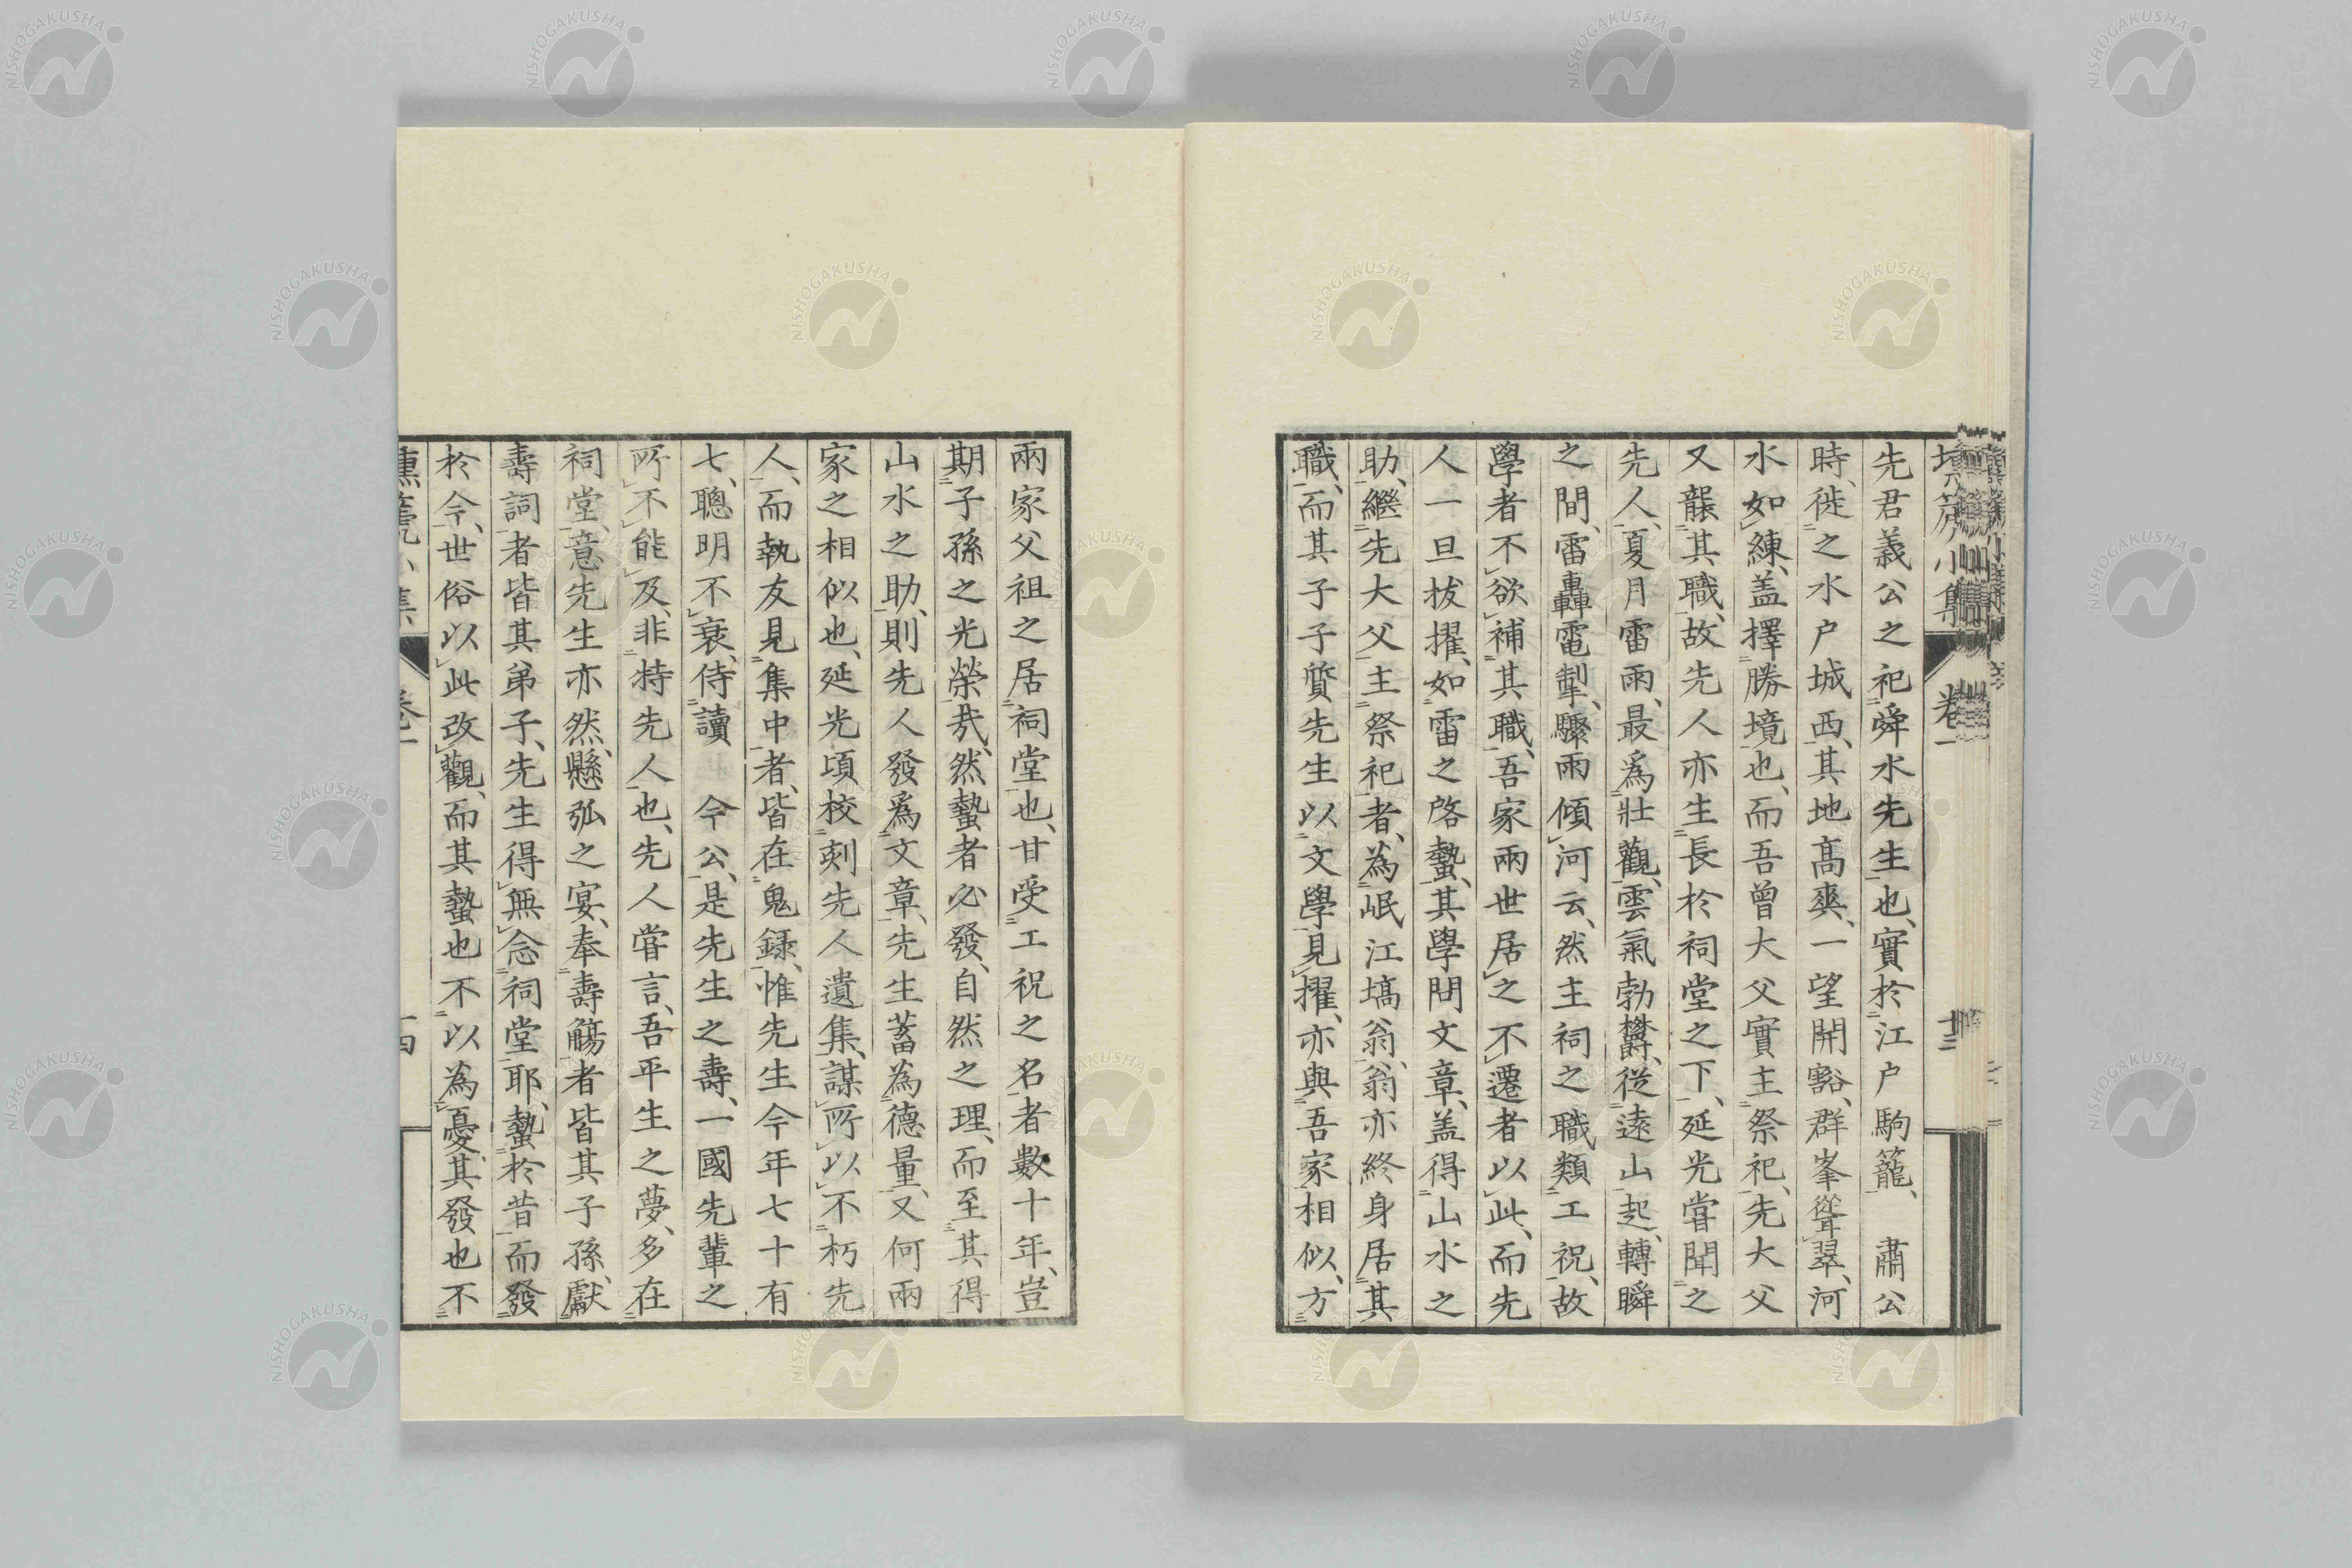 壎篪小集 卷一 十三
先君義公之祀舜水先生也、實於江户駒籠、 肅公
時、徙之水户城西、其地髙爽、一望開豁、群峯聳翠、河
水如練、盖擇勝境也、而吾曾大父實主祭祀、先大父
又襲其職、故先人亦生長於祠堂之下、延光嘗聞之
先人、夏月雷雨、最爲壯觀、雲氣勃欝、從遠山起、轉瞬
之間、雷轟電掣、驟雨傾河云、然主祠之職類工祝、故
學者不欲補其職、吾家兩世居之不遷者以此、而先
人一旦拔擢、如雷之啓蟄、其學問文章、盖得山水之
助、繼先大父主祭祀者、為岷江塙翁、翁亦終身居其
職、而其子子質先生以文學見擢、亦與吾家相似、方
兩家父祖之居祠堂也、甘受工祝之名者數十年、豈
期子孫之光榮哉、然蟄者必發、自然之理、而至其得
山水之助、則先人發爲文章、先生蓄為德量、又何兩
家之相似也、延光頃校刻先人遺集、謀所以不朽先
人、而執友見集中者、皆在鬼録、惟先生今年七十有
七、聰明不衰、侍讀 今公、是先生之壽、一國先輩之
所不能及、非特先人也、先人嘗言、吾平生之夢、多在
祠堂、意先生亦然、懸弧之宴、奉壽觴者皆其子孫、獻
壽詞者皆其弟子、先生得無念祠堂耶、蟄於昔而發
於今、世俗以此改觀、而其蟄也不以為憂、其發也不
壎篪小集 卷一 十四